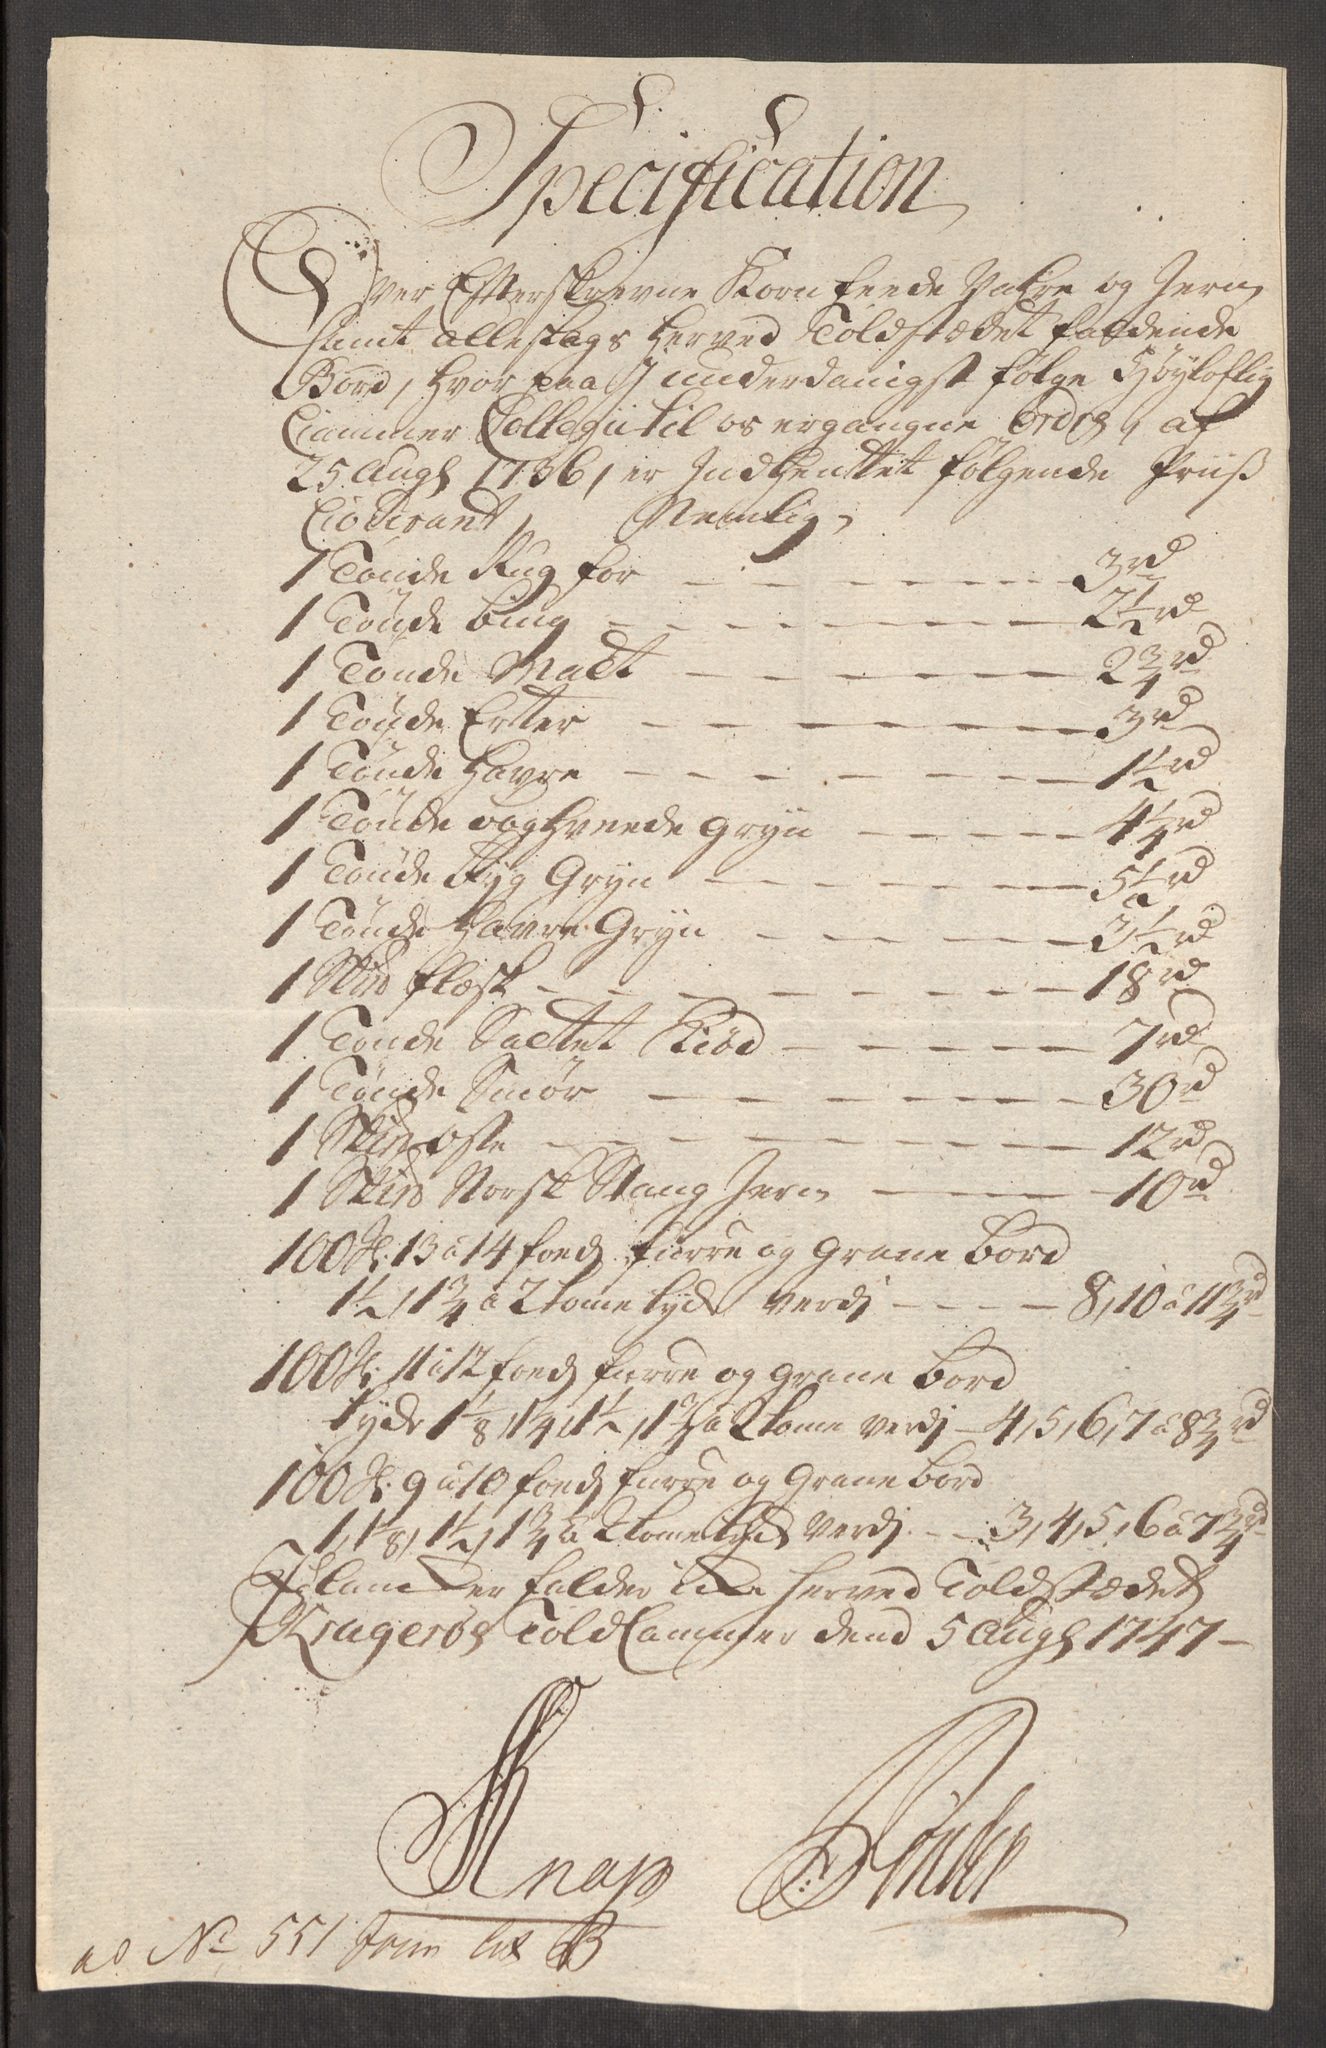 Specification
Over Efterskrevne Korn feede Vahre og Jern
samt alleslags herved Toldstædet faldende
Bord, hvor paa J underdanigst følge Høyloflig
Cammer Collegii til os ergangne Ordre, af
25 Augh 1736, er Indhentet følgende Priiß
Courant, Nemlig,
1 Tønde Rug for 3 rd
1 Tønde biug 2 1/2 rd
1 Tønde Malt 2 3/4 rd
1 Tønde Erter 3 rd
1 Tønde Havre 1 1/2 rd
1 Tønde boghveede Gryn 4 1/4 rd
1 Tønde byg Gryn 5 1/2 rd
1 Tønde Havre Gryn 3 1/2 rd
1 Skld flesk 18 rd
1 Tønde Saltet Kiød 7 rd
1 Tønde Smør 30 rd
1 Skld oste 12 rd
1 Skld Norsk Stang Jern 10 rd
100 st. 13 a 14 foeds furre og Grane bord
1 1/2, 1 3/4 a 2 tome tyds verdj 8, 10 a 11 3/4 rd
100 st. 11 a 12 foeds furre og grane bord
tyds 1 1/8, 1 1/4, 1 1/2, 1 3/4 a 2 tome verdj 4, 5, 6, 7 a 8 3/4 rd
100 st. 9 a 10 foeds furre og Grane bord
1, 1 1/8, 1 1/2, 1 3/4 a 2 tome tyds Verdj 3, 4, 5, 6 a 7 3/4 rd
falder icke herved Toldstædet
Kragerøe Told Cammer dend 5 Augh 1747
Knap
ad No 551 Jrm lit B